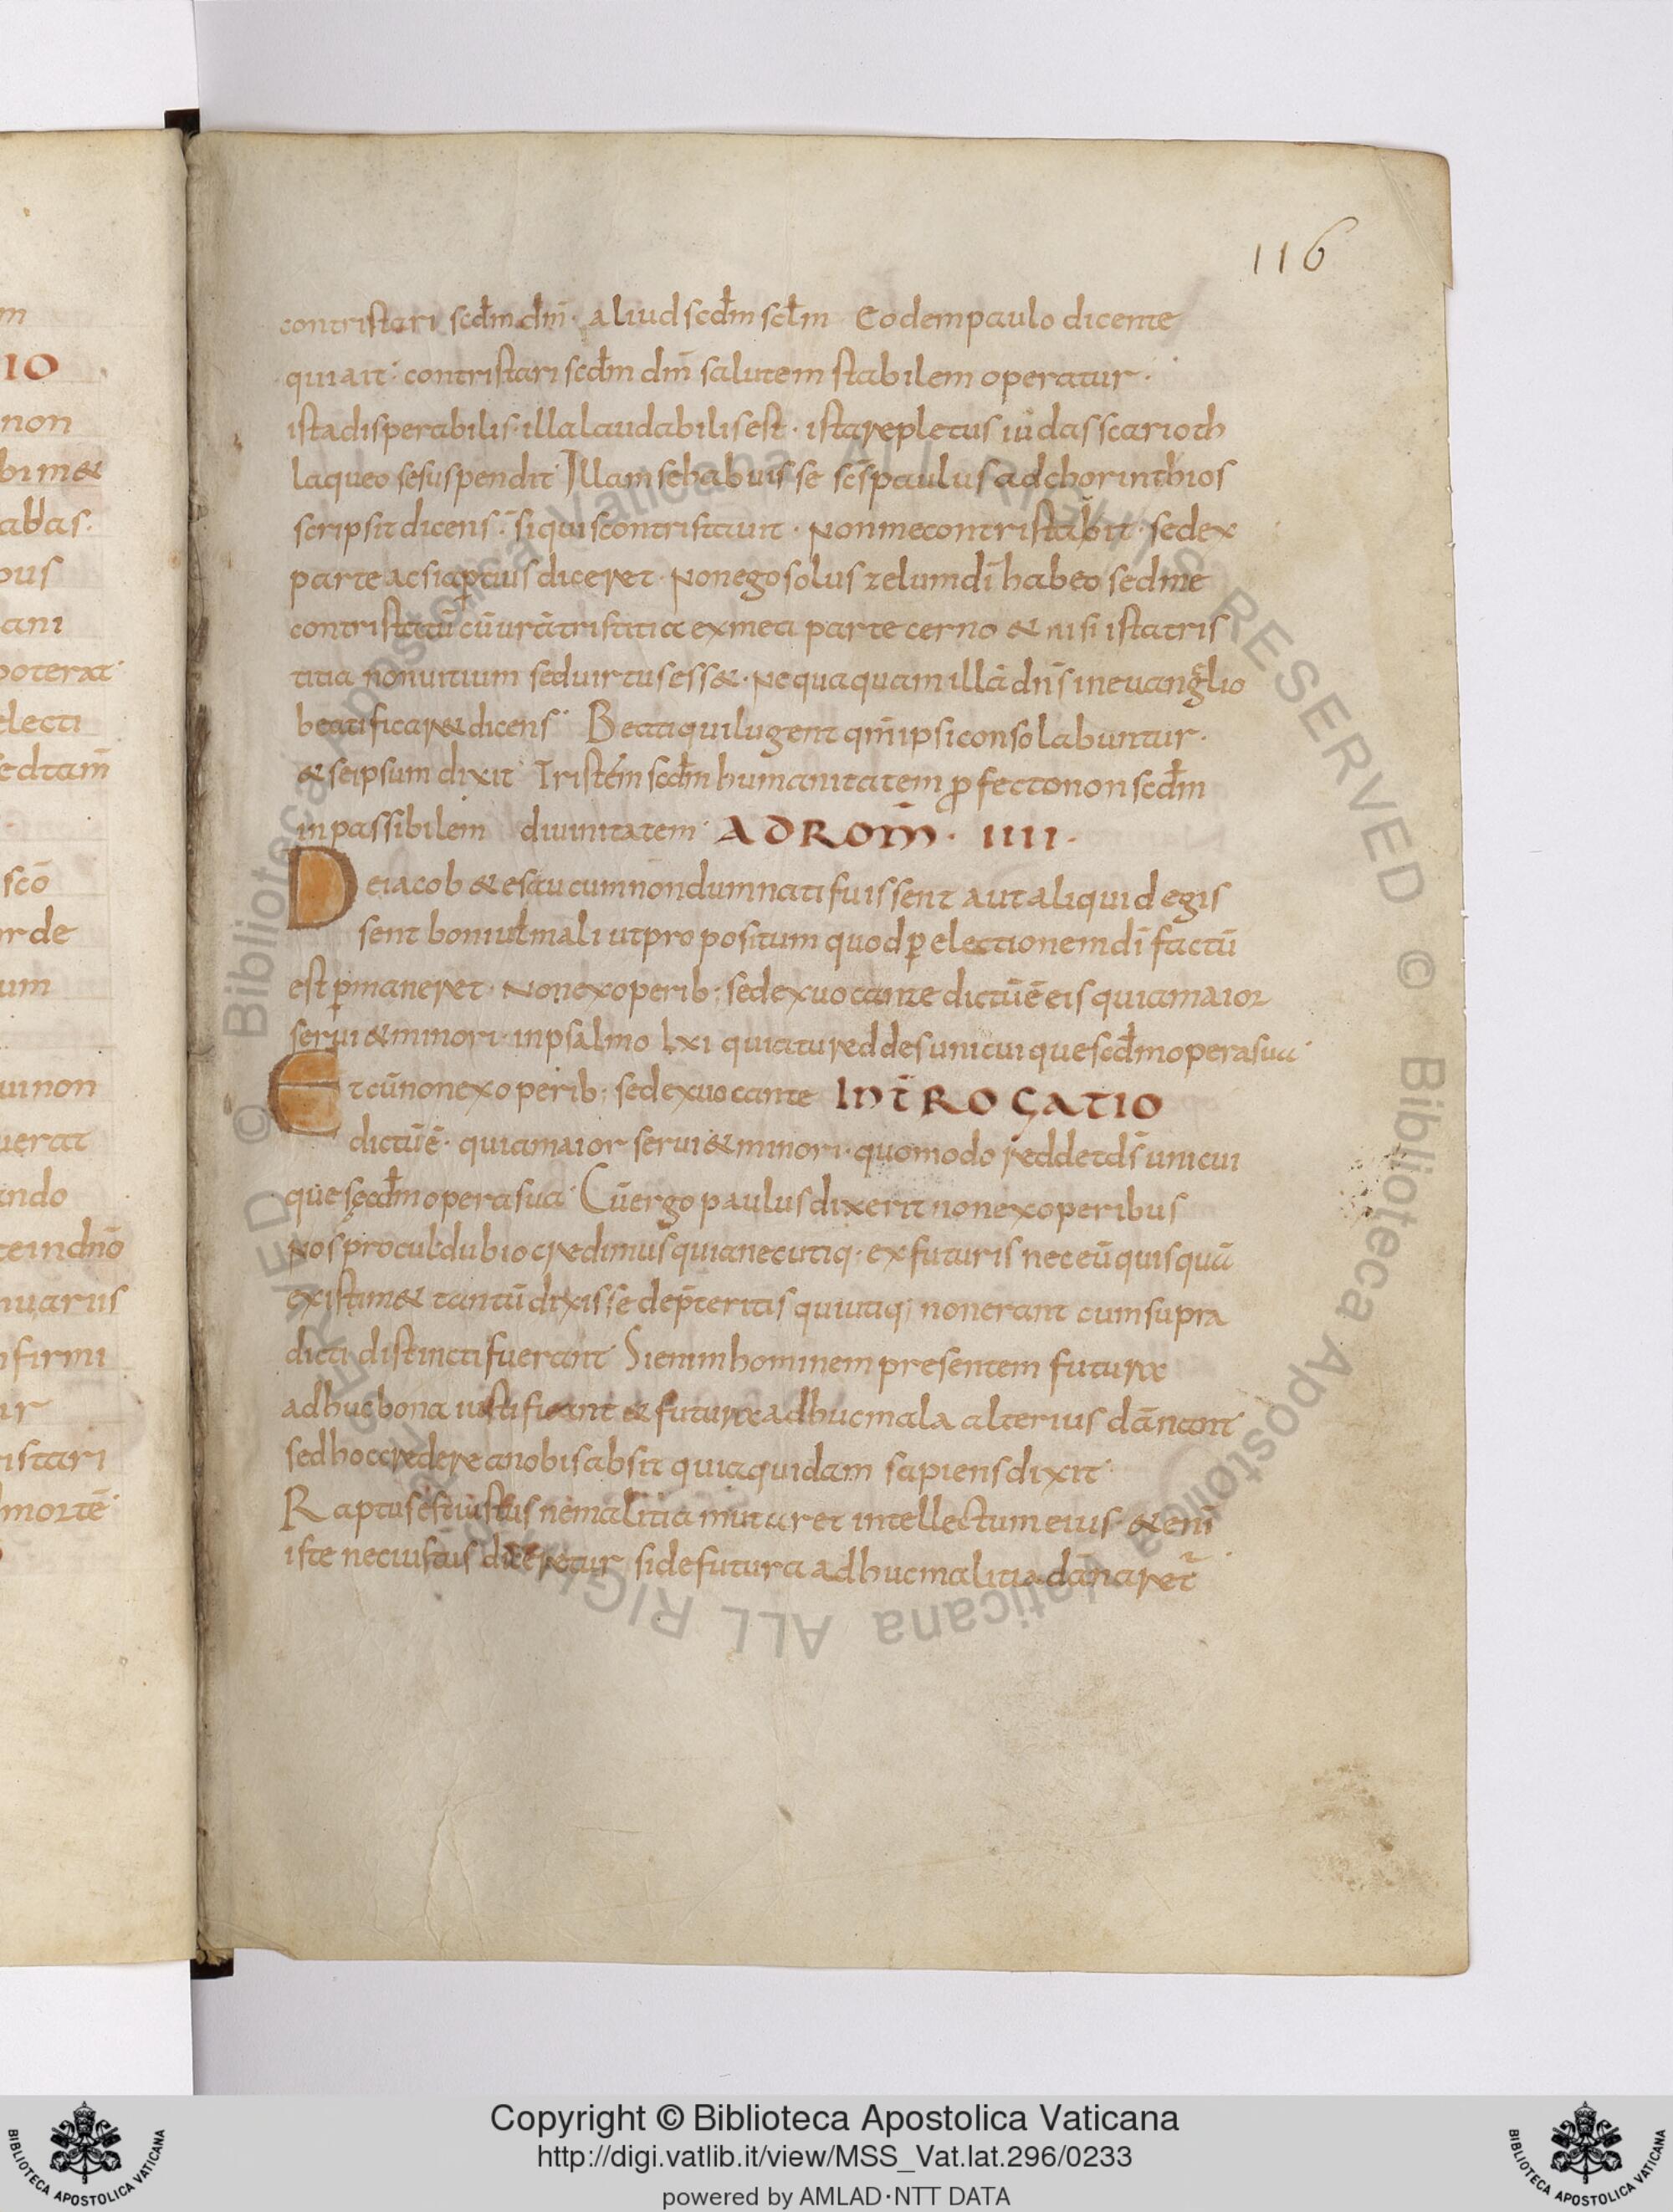 116
contristari scđm dm̄· aliud scđm scƚm Eodem paulo dicente
qui ait· contristari scđm dm̄ salutem stabilem operatur·
ista disperabilis· illa laudabilis est· ista repletus iudas scarioth
laqueo se suspendit Illam se habuisse sc̄s paulus ad chorinthios
scripsit dicens· si quis contristauit· Non me contristabit· sed ex
parte ac si aptius diceret· Non ego solus zelum dī habeo sed me
contristatū cū urā tristitia ex mea parte cerno & nisi ista tris
titia non uitium sed uirtus ess&· Nequaquam illā dn̄s in euanglio
beatificar& dicens Beati qui lugent qm̄ ipsi consolabuntur·
& seipsum dixit Tristem scđm humanitatem ꝓfecto non scđm
inpassibilem diuinitatem· AD ROM̄· IIII·
De iacob & esau cum nondum nati fuissent aut aliquid egis
sent boni uƚ mali ut propositum quod ꝑ electionem dī factū
est ꝑmaneret· Non ex operib; sed ex uocante dictū ē eis quia maior
serui& minori· in psalmo lxi quia tu reddes unicuique scđm opera sua·
Et cū non ex operib; sed ex uocante INT̄ROGATIO
dictū ē· quia maior serui& minori· quomodo reddet ds̄ unicui
que secđm opera sua· Cū ergo paulus dixerit non ex operibus
Nos procul dubio credimus quia nec utiq· ex futuris nec eū quisquā
existim& tantū dixisse de p̄teritis qui utiq; non erant cum supra
dicti distincti fuerant Si enim hominem presentem futura
adhuc bona iustificant & futura adhuc mala alterius dānant
sed hoc credere a nobis absit quia quidam sapiens dixit·
Raptus est iustus ne malitia mutaret intellectum eius· & enī
iste nec iustus diceretur si de futura adhuc malitia dānaret᷑
m
IO
non
bim&
abbas·
bus
ani
poterat·
electi
sed tam̄
scō
rde
um
ui non
uerat
ando
te in dn̄o
nuarius
nfirmi
ur
ristari
mortē·
© Biblioteca Apostolica Vaticana ALL RIGHTS RESERVED © Biblioteca Apostolica Vaticana ALL RIGHTS RESERVED
Copyright © Biblioteca Apostolica Vaticana
http://digi.vatlib.it/view/MSS_Vat.lat.296/0233
powered by AMLAD·NTT DATA
BIBLIOTECA APOSTOLICA VATICANA
BIBLIOTECA APOSTOLICA VATICANA